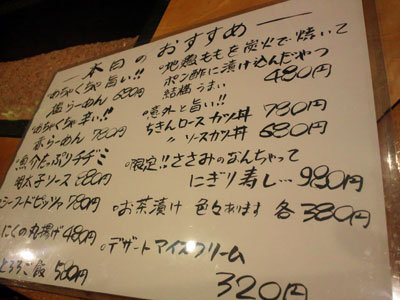 本日のおすすめ
めちゃくちゃ旨い!!
塩らーめん 680円
めちゃくちゃ辛い!!
赤らーめん 780円
魚介たっぷりチヂミ
明太子ソース 880円
シーフードピッツァ 780円
にくの丸揚げ 480円
とろろご飯 580円
地鶏ももを炭火で焼いて
ポン酢に漬け込んだやつ
結構うまい 480円
意外と旨い!!
ちきんロースカツ丼 780円
〃 ソースカツ丼 680円
限定!!ささみのなんちゃって
にぎり寿し…980円
お茶漬け 色々あります 各380円
デザートアイスクリーム
320円